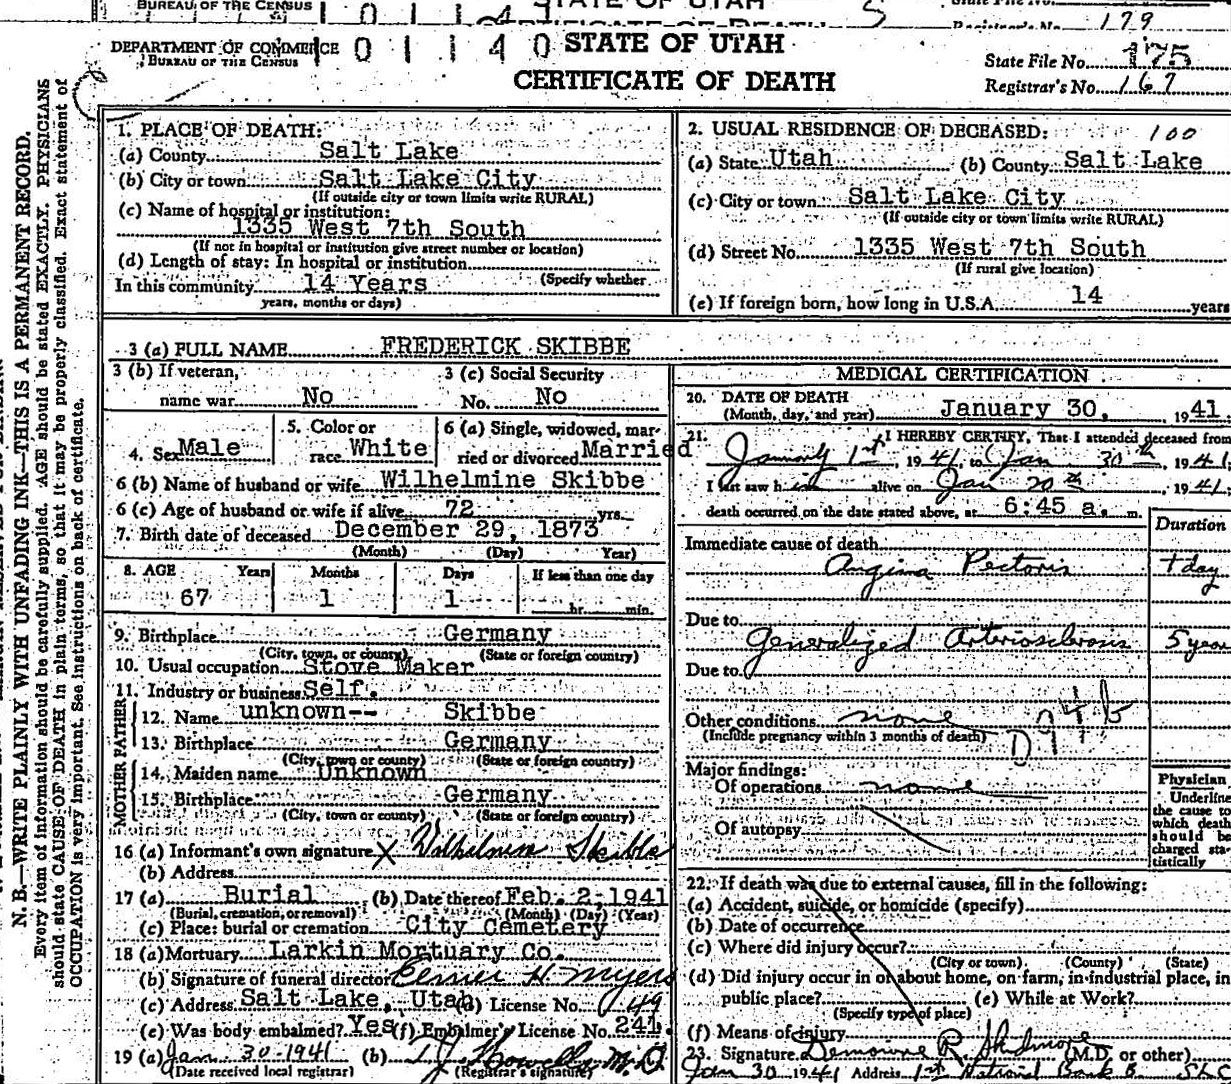 BUREAU OF THE CENSUS
STATE OF UTAH
Registrar's No. 179
DEPARTMENT OF COMMERCE
BUREAU OF THE CENSUS
0 1 1 4 0
STATE OF UTAH
CERTIFICATE OF DEATH
State File No. 175
Registrar's No. 167
N. B.—WRITE PLAINLY WITH UNFADING INK—THIS IS A PERMANENT RECORD.
Every item of information should be carefully supplied. AGE should be stated EXACTLY. PHYSICIANS
should state CAUSE OF DEATH in plain terms, so that it may be properly classified. Exact statement of
OCCUPATION is very important. See instructions on back of certificate.
1. PLACE OF DEATH:
(a) County Salt Lake
(b) City or town Salt Lake City
(If outside city or town limits write RURAL)
(c) Name of hospital or institution:
1335 West 7th South
(If not in hospital or institution give street number or location)
(d) Length of stay: In hospital or institution
(Specify whether
In this community 14 Years
years, months or days)
2. USUAL RESIDENCE OF DECEASED: 100
(a) State Utah (b) County Salt Lake
(c) City or town Salt Lake City
(If outside city or town limits write RURAL)
(d) Street No. 1335 West 7th South
(If rural give location)
(e) If foreign born, how long in U.S.A. 14 years
3 (a) FULL NAME FREDERICK SKIBBE
3 (b) If veteran, name war No
3 (c) Social Security No. No
4. Sex Male
5. Color or race White
6 (a) Single, widowed, married or divorced Married
6 (b) Name of husband or wife Wilhelmine Skibbe
6 (c) Age of husband or wife if alive 72 yrs.
7. Birth date of deceased December 29, 1873
(Month) (Day) Year)
8. AGE Years Months Days If less than one day
67 1 1 hr. min.
9. Birthplace Germany
(City, town, or county) (State or foreign country)
10. Usual occupation Stove Maker
11. Industry or business Self.
FATHER
12. Name unknown-- Skibbe
13. Birthplace Germany
(City, town or county) (State or foreign country)
MOTHER
14. Maiden name Unknown
15. Birthplace Germany
(City, town or county) (State or foreign country)
16 (a) Informant's own signature X Wilhelmine Skibbe
(b) Address
17 (a) Burial (b) Date thereof Feb. 2, 1941
(Burial, cremation, or removal) (Month) (Day) (Year)
(c) Place: burial or cremation City Cemetery
18 (a) Mortuary Larkin Mortuary Co.
(b) Signature of funeral director Elmer H. Myers
(c) Address Salt Lake, Utah (d) License No. 149
(e) Was body embalmed? Yes (f) Embalmer's License No. 241.
19 (a) Jan 30-1941 (b) M.D.
(Date received local registrar) (Registrar's signature)
MEDICAL CERTIFICATION
20. DATE OF DEATH
(Month, day, and year) January 30, 1941.
21. I HEREBY CERTIFY, That I attended deceased from
January 1st, 1941, to Jan 30th, 1941.
I last saw him alive on Jan 20th, 1941.
death occurred on the date stated above, at 6:45 a. m.
Duration
Immediate cause of death
Angina Pectoris 1 day
Due to
Generalized Arteriosclerosis 5 year
Due to
Other conditions none
(Include pregnancy within 3 months of death)
D94b
Major findings:
Of operations none
Of autopsy
Physician
Underline
the cause to
which death
should be
charged sta-
tistically
22. If death was due to external causes, fill in the following:
(a) Accident, suicide, or homicide (specify)
(b) Date of occurrence
(c) Where did injury occur?
(City or town) (County) (State)
(d) Did injury occur in or about home, on farm, in industrial place, in
public place? (e) While at Work?
(Specify type of place)
(f) Means of injury
23. Signature R Skidmore (M.D. or other)
Jan 30 1941 Address 1st National Bank B